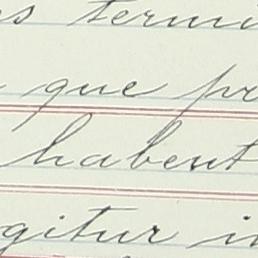 s termi
que pr
habent
gitur i